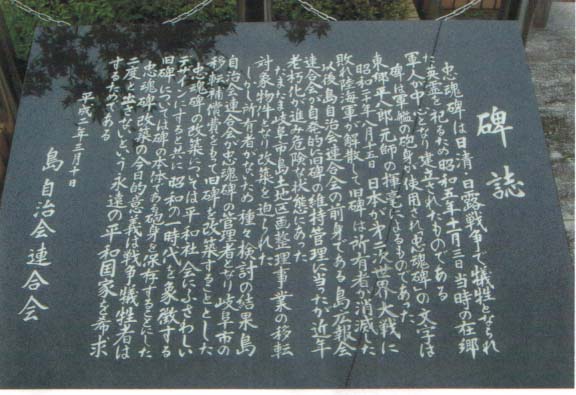 碑誌
忠魂碑は日清・日露戦争で犠牲となられ
た英霊を祀るため昭和五年十一月三日当時の在郷
軍人が中心となり建立されたものである
碑は軍艦の砲身が使用され「忠魂碑」の文字は
東郷平八郎元帥の揮毫によるものであった
昭和二十年八月十五日日本が第二次世界大戦に
敗れ陸海軍が解散して旧碑は所有者が消滅した
以後島自治会連合会の前身である島広報会
連合会が自発的に旧碑の維持管理に当たが近年
老朽化が進み危険な状態にあった
たまたま岐阜市島土地区画整理事業の移転
対象物件となり改築を迫られた
しかし所有者がないため種々検討の結果島
自治会連合会が忠魂碑の管理者となり岐阜市の
移転補償費をもって旧碑を改築することとした
忠魂碑の改築については平和社会にふさわしい
デザインにすると共に昭和の一時代を象徴する
旧碑については碑の本体である砲身を保存することにした
忠魂碑改築の今日的意義は戦争犠牲者は
二度と出さないという永遠の平和国家を希求
するものである
平成二年三月十日
島自治会連合会